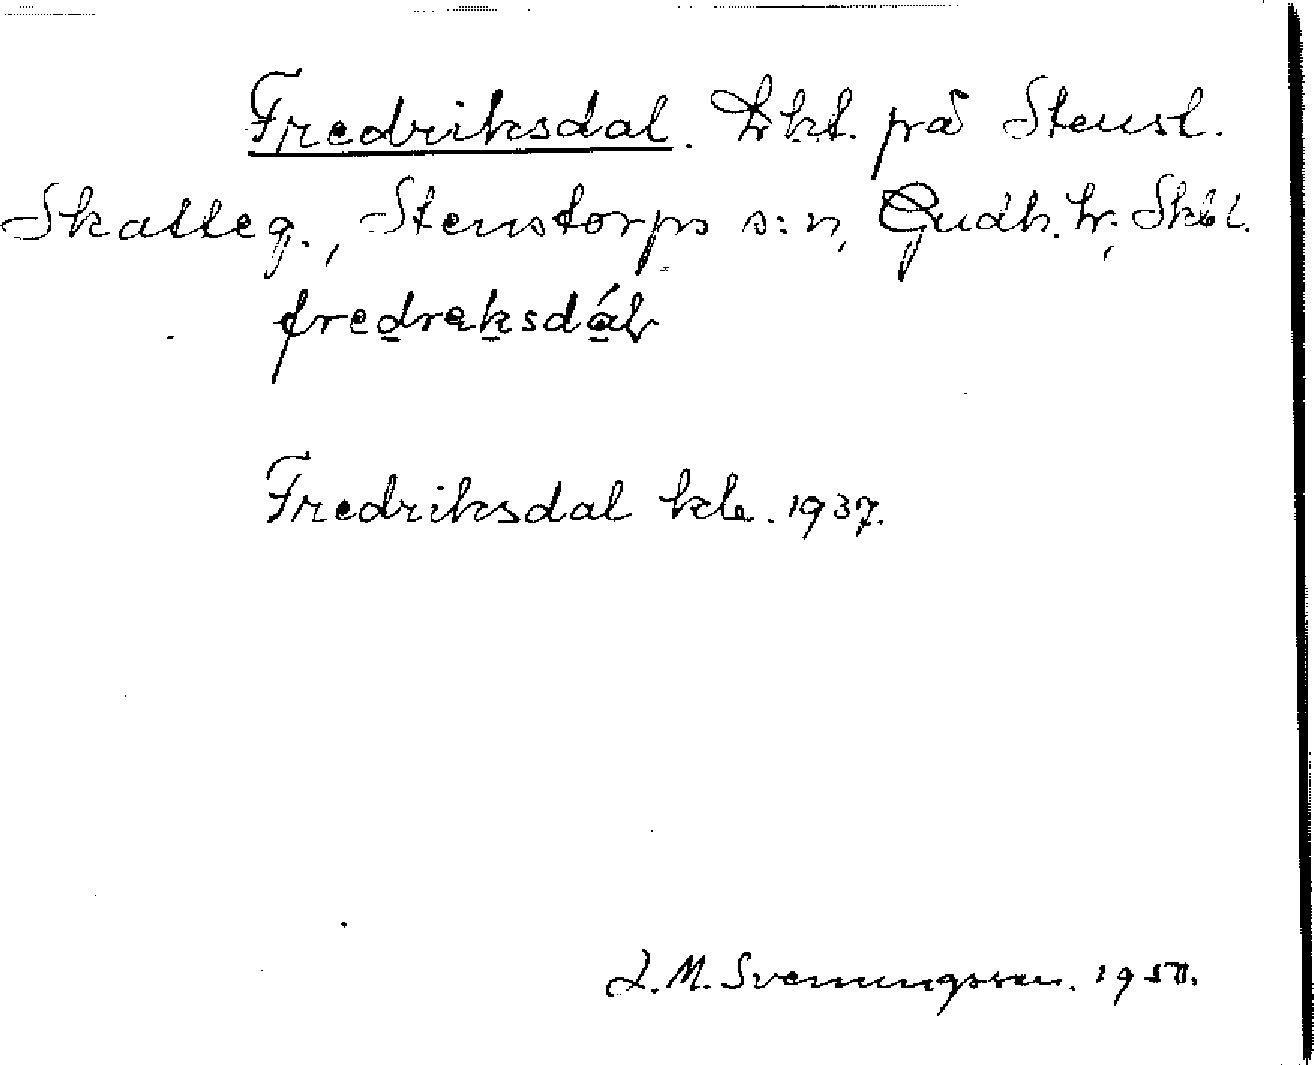 Fredriksdal. Lkt. på Stensl.
Skatteg., Stenstorps s:n, Gudh. hr, Skbl.
fredreksdál
Fredriksdal kle. 1937.
J. M. Svenungsson. 195